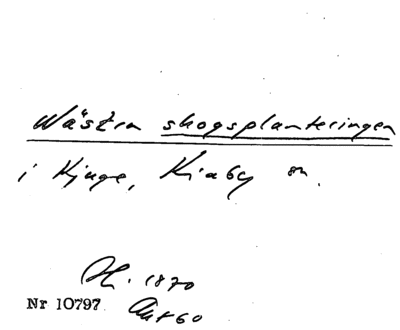 Wästra skogsplanteringen
i Kjuge, Kiaby sn.
H. 1870
Nr 10797 Akt 60